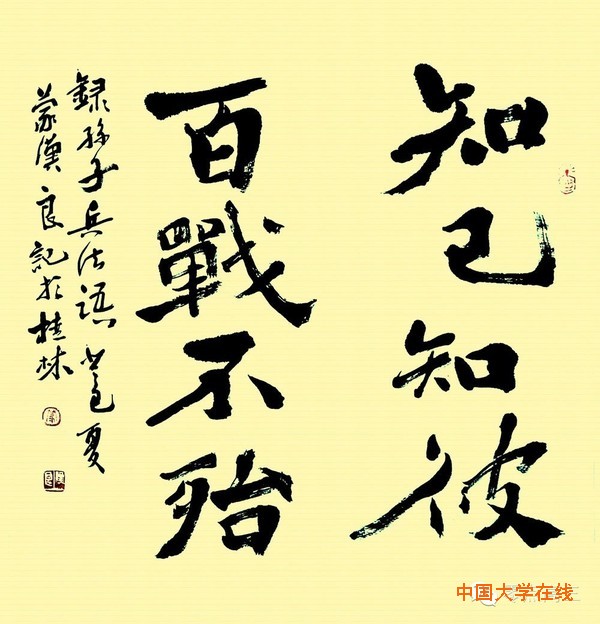 知己知彼
百戰不殆
録孫子兵法語 夏
蒙漢良記於桂林
中国大学在线